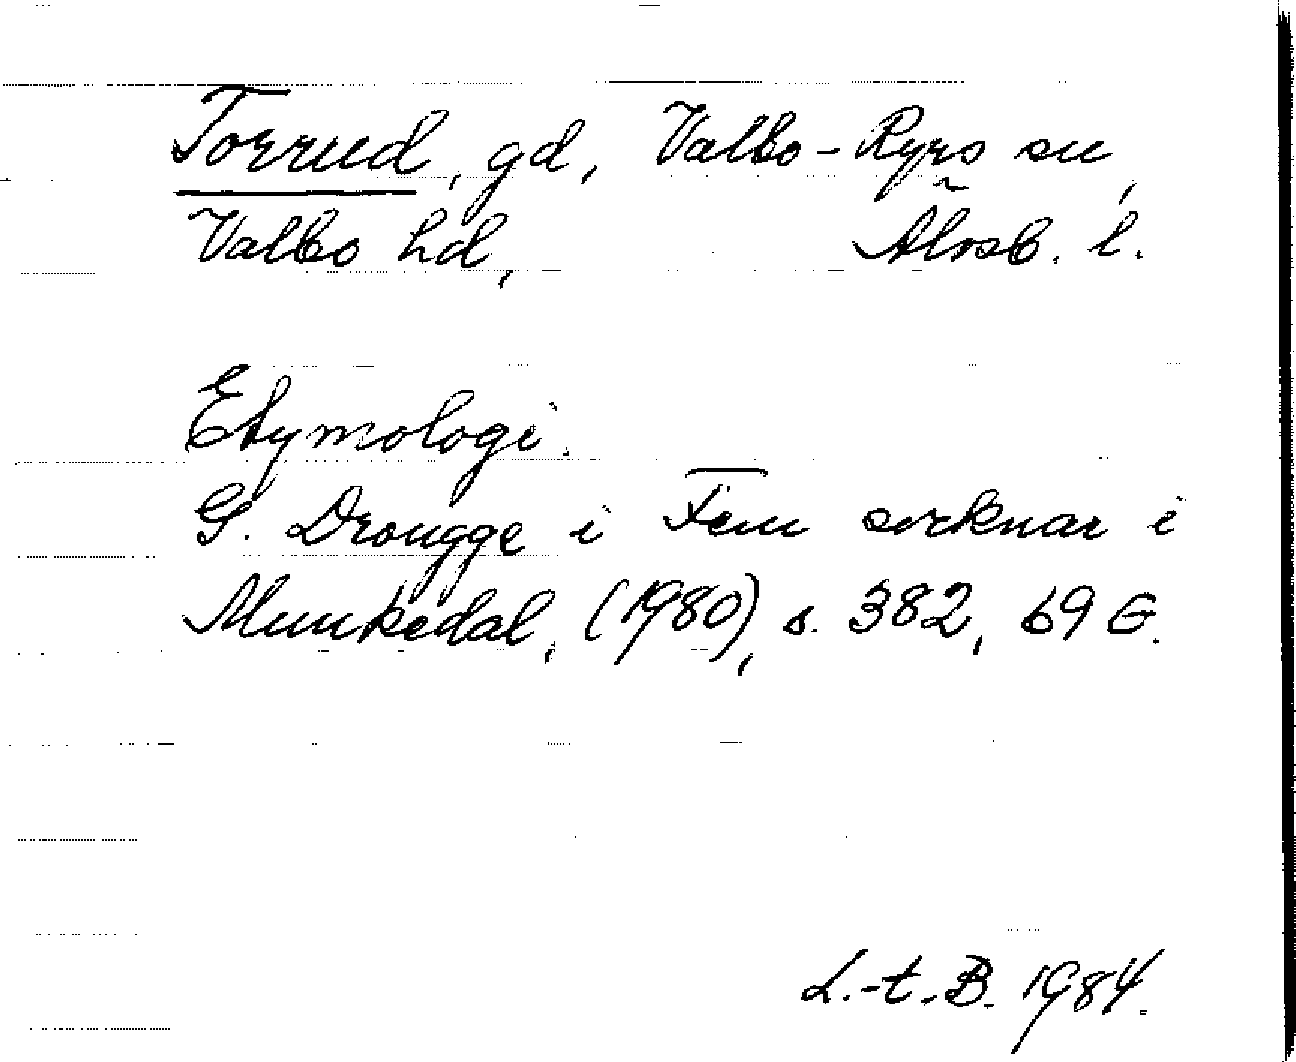 Torrud, gd, Valbo-Ryrs sn,
Valbo hd, Älvsb. l.
Etymologi.
G. Drougge i Fem socknar i
Munkedal, (1980), s. 382, 69 G.
L.-t.-B. 1984.